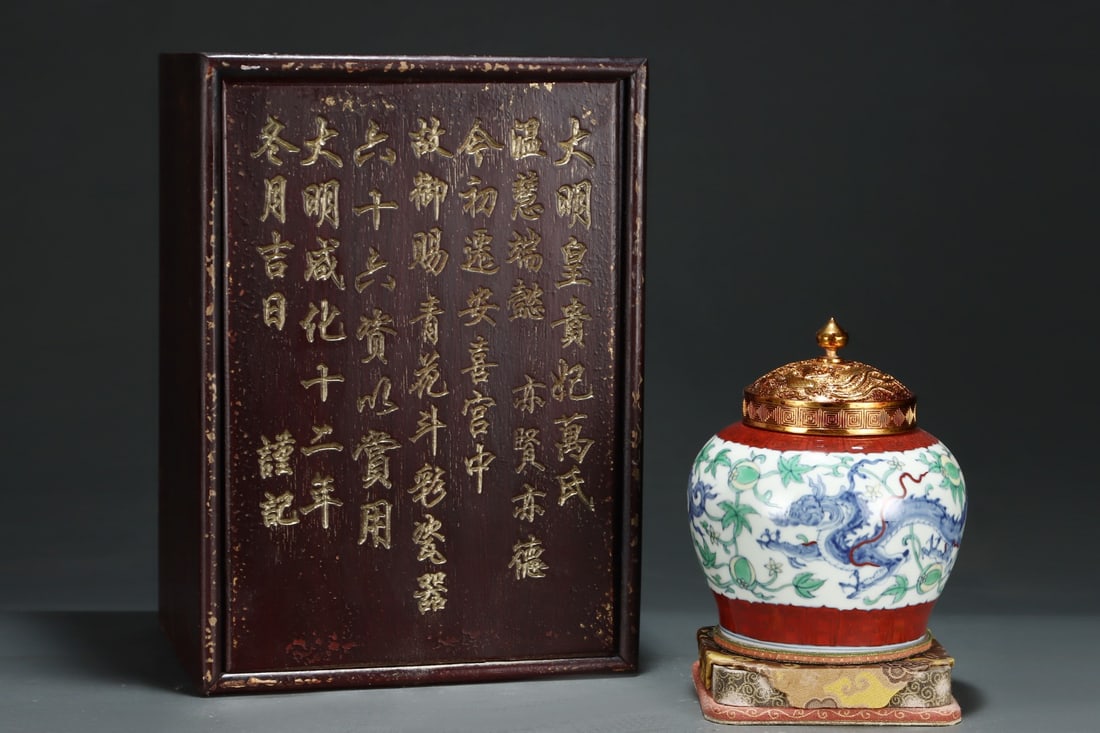 大明皇貴妃萬氏
温慧端懿 亦賢亦德
今初遷安喜宫中
故御賜青花斗彩瓷器
六十六资以賞用
大明成化十二年
冬月吉日 謹記